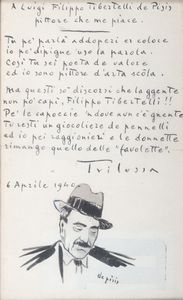 A Luigi Filippo Tibertelli de Pisis
pittore che me piace.
Tu pe' parlà addopri er colore
io pe' dipigne uso la parola.
Così tu sei poeta de valore
ed io sono pittore d'arta scola.
Ma questi so' discorsi che la gente
non po' capì, Filippo Tibertelli!!
Pe' le capoccie 'ndove nun c'è gnente
Tu resti un giocoliere de pennelli
ed io pei raggionieri e le donnette
rimango quello delle "favolette".
Trilussa
6 Aprile 1940
de pisis